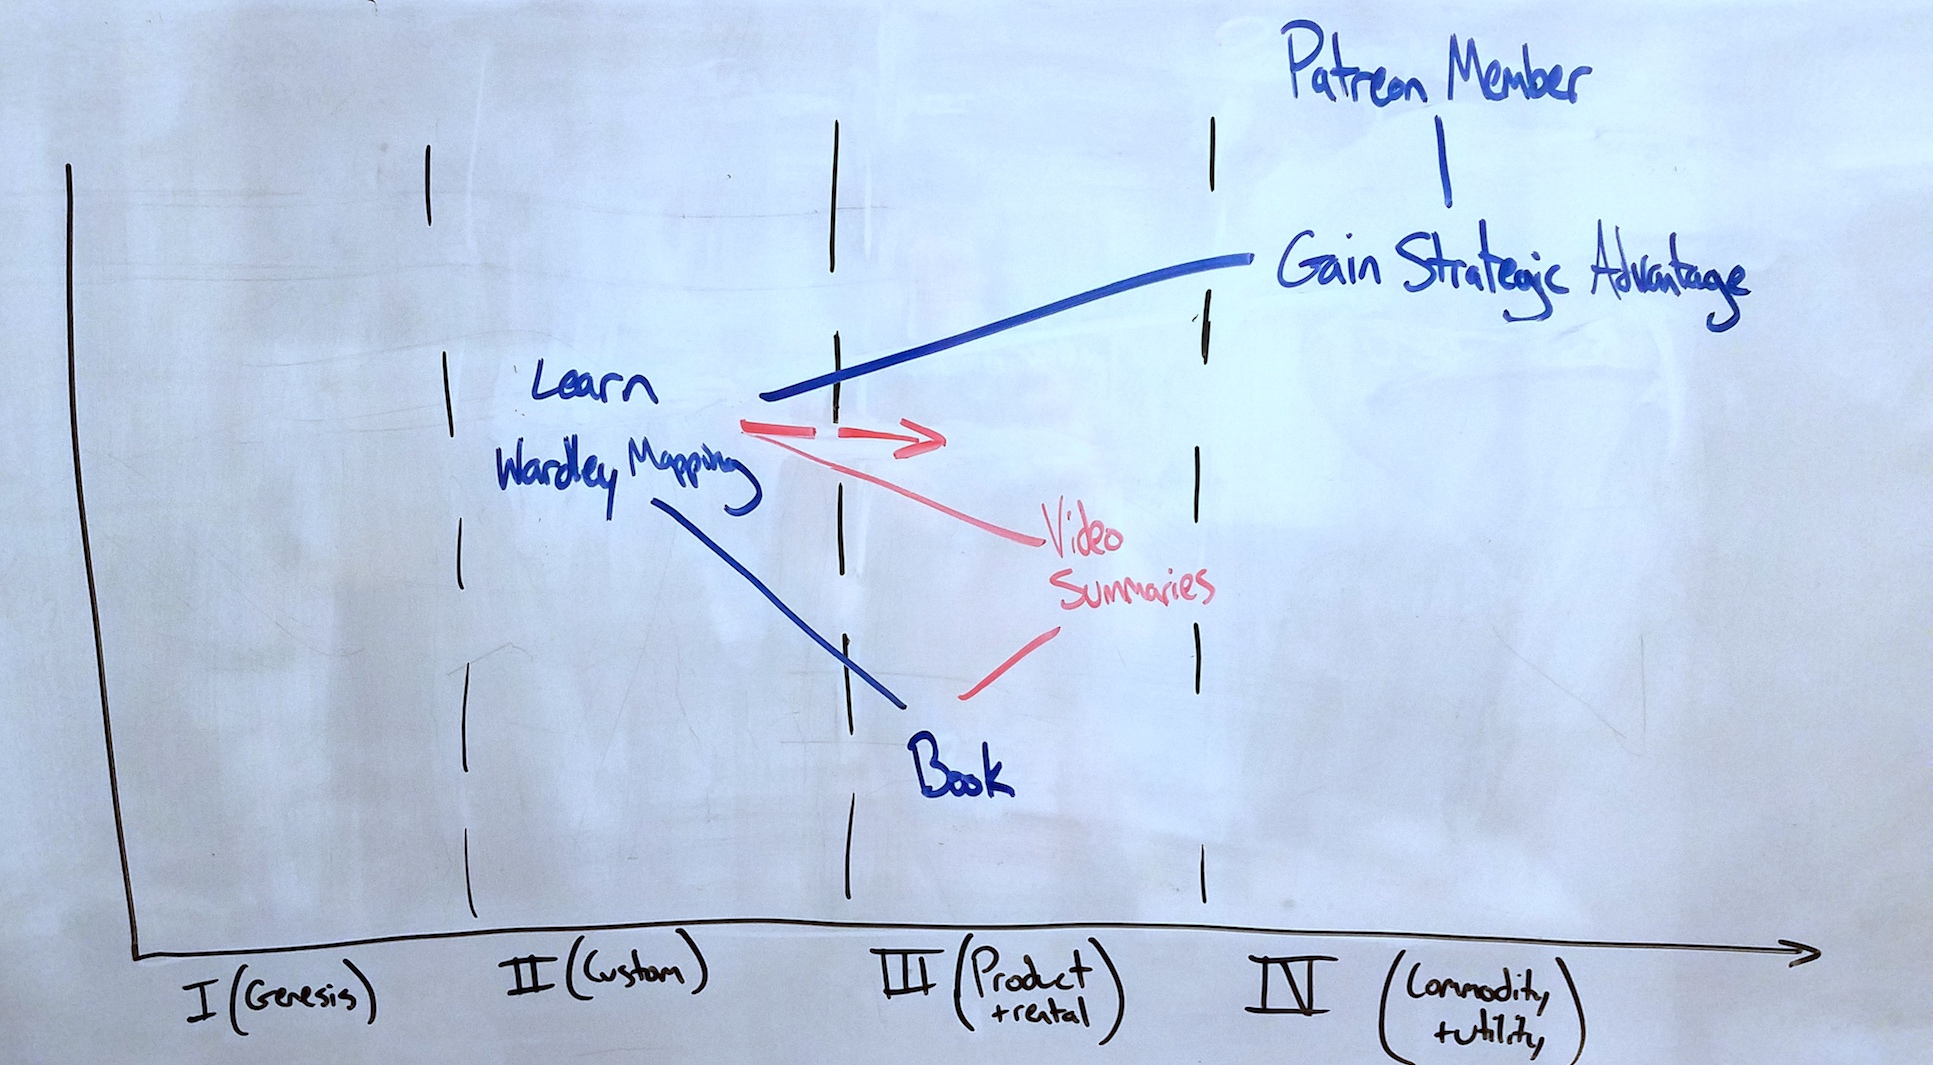 Patreon Member
Gain Strategic Advantage
Learn
Wardley Mapping
Video
Summaries
Book
I (Genesis)
II (Custom)
III (Product
+rental)
IV (Commodity
+utility)